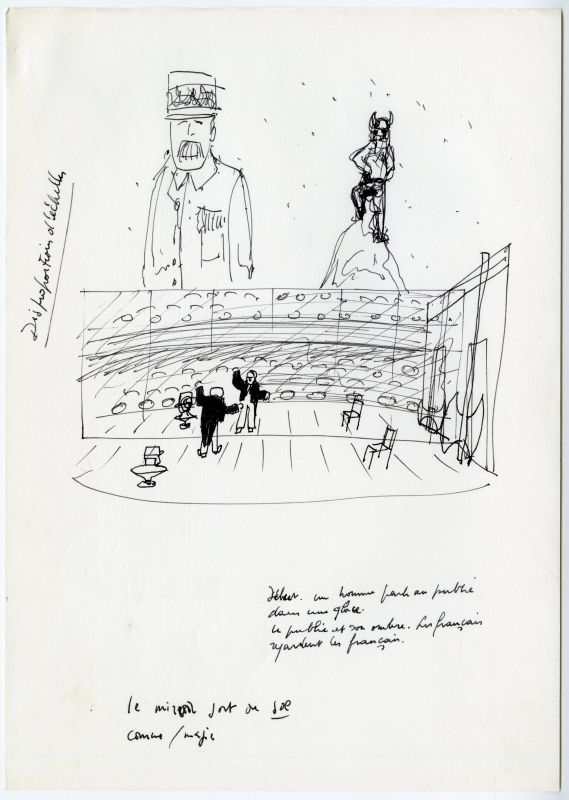 Disproportion d'échelles
Début. un homme parle au public
dans une glace.
Le public et son ombre. Les français
regardent les français.
le miroir sort du sol
comme / magie